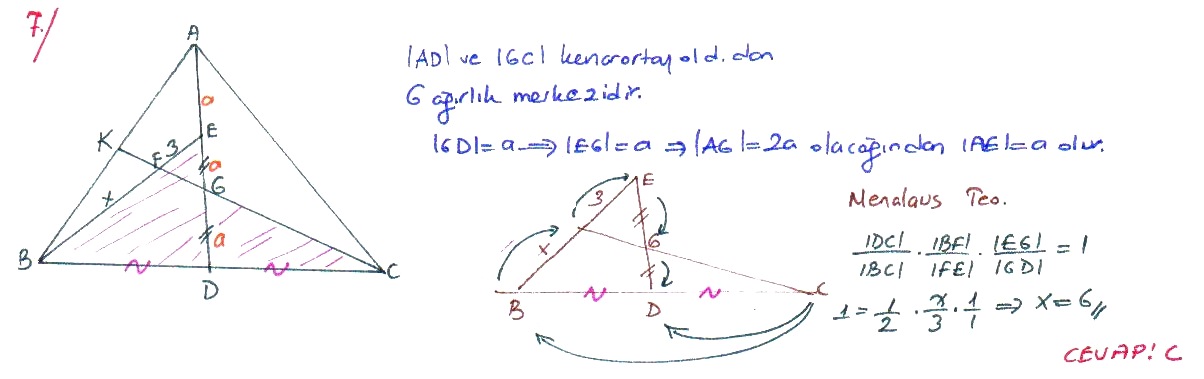 7./
A
a
K
E
F
3
a
x
G
a
B
D
C
|AD| ve |GC| kenarortay old.dan
G ağırlık merkezidir.
|GD|= a ⟹ |EG|= a ⇒ |AG|= 2a olacağından |AE|= a olur.
E
3
x
G
B
D
C
Menalaus Teo.
|DC|/|BC| · |BF|/|FE| · |EG|/|GD| = 1
1 = 1/2 · x/3 · 1/1 ⇒ x = 6 //
CEVAP! C